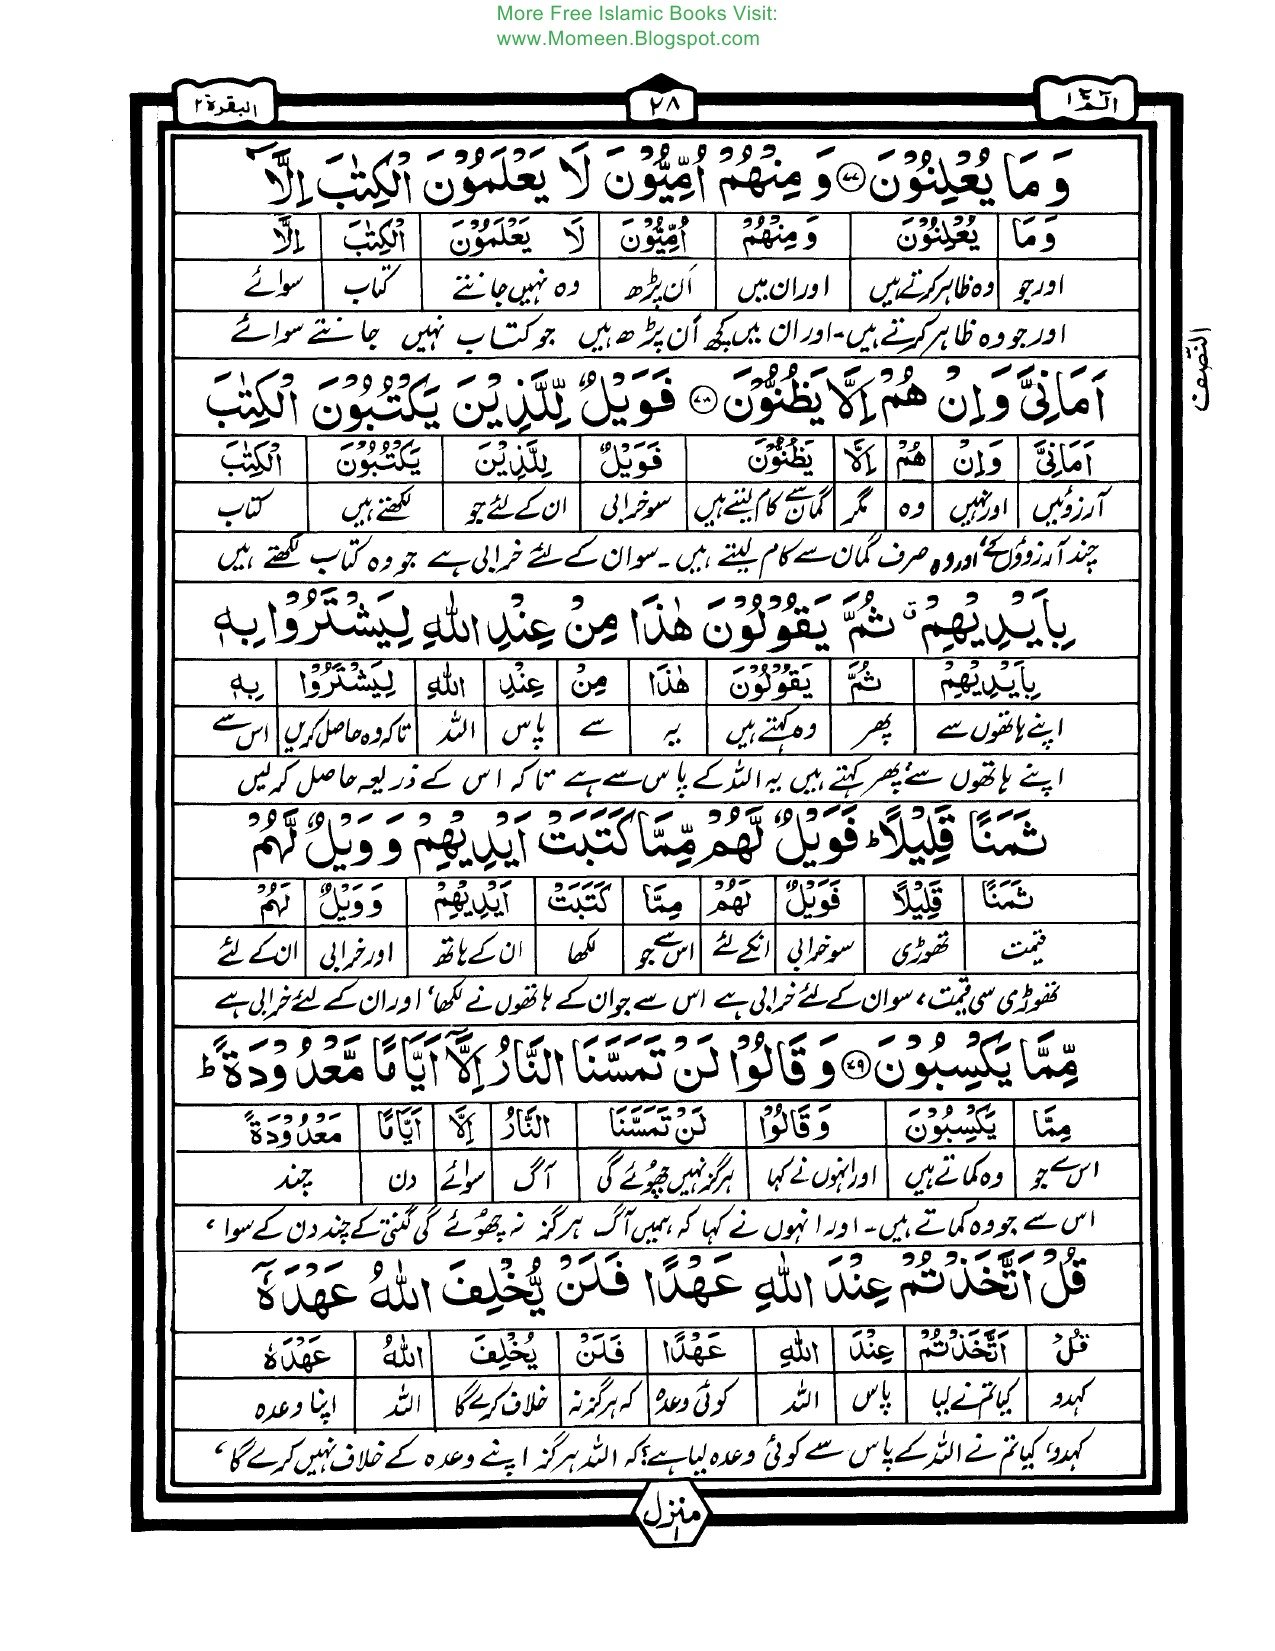 More Free Islamic Books Visit:
www.Momeen.Blogspot.com
الٓمّٓ ١
٢٨
البقرة ٢
وَ مَا يُعْلِنُوْنَ ﴿٧٧﴾ وَ مِنْهُمْ اُمِّيُّوْنَ لَا يَعْلَمُوْنَ الْكِتٰبَ اِلَّآ
وَ مَا يُعْلِنُوْنَ وَ مِنْهُمْ اُمِّيُّوْنَ لَا يَعْلَمُوْنَ الْكِتٰبَ اِلَّا
اور جو وہ ظاہر کرتے ہیں اور ان میں اَن پڑھ وہ نہیں جانتے کتاب سوائے
اور جو وہ ظاہر کرتے ہیں۔ اور ان میں کچھ اَن پڑھ ہیں جو کتاب نہیں جانتے سوائے
النّصف
اَمَانِيَّ وَاِنْ هُمْ اِلَّا يَظُنُّوْنَ ﴿٧٨﴾ فَوَيْلٌ لِّلَّذِيْنَ يَكْتُبُوْنَ الْكِتٰبَ
اَمَانِيَّ وَاِنْ هُمْ اِلَّا يَظُنُّوْنَ فَوَيْلٌ لِلَّذِيْنَ يَكْتُبُوْنَ الْكِتٰبَ
آرزوئیں اور نہیں وہ مگر گمان سے کام لیتے ہیں سو خرابی ان کے لئے جو لکھتے ہیں کتاب
چند آرزوؤں کے، اور وہ صرف گمان سے کام لیتے ہیں۔ سو ان کے لئے خرابی ہے جو وہ کتاب لکھتے ہیں
بِاَيْدِيْهِمْ ۛ ثُمَّ يَقُوْلُوْنَ هٰذَا مِنْ عِنْدِ اللّٰهِ لِيَشْتَرُوْا بِهٖ
بِاَيْدِيْهِمْ ثُمَّ يَقُوْلُوْنَ هٰذَا مِنْ عِنْدِ اللّٰهِ لِيَشْتَرُوْا بِهٖ
اپنے ہاتھوں سے پھر وہ کہتے ہیں یہ سے پاس اللہ تاکہ وہ حاصل کریں اس سے
اپنے ہاتھوں سے، پھر کہتے ہیں یہ اللہ کے پاس سے ہے تاکہ اس کے ذریعہ حاصل کرلیں
ثَمَنًا قَلِيْلًا ؕ فَوَيْلٌ لَّهُمْ مِّمَّا كَتَبَتْ اَيْدِيْهِمْ وَ وَيْلٌ لَّهُمْ
ثَمَنًا قَلِيْلًا فَوَيْلٌ لَهُمْ مِمَّا كَتَبَتْ اَيْدِيْهِمْ وَ وَيْلٌ لَهُمْ
قیمت تھوڑی سو خرابی انکے لئے اس سے جو لکھا ان کے ہاتھ اور خرابی ان کے لئے
تھوڑی سی قیمت، سو ان کے لئے خرابی ہے اس سے جو ان کے ہاتھوں نے لکھا، اور ان کے لئے خرابی ہے
مِّمَّا يَكْسِبُوْنَ ﴿٧٩﴾ وَ قَالُوْا لَنْ تَمَسَّنَا النَّارُ اِلَّآ اَيَّامًا مَّعْدُوْدَةً ؕ
مِمَّا يَكْسِبُوْنَ وَ قَالُوْا لَنْ تَمَسَّنَا النَّارُ اِلَّا اَيَّامًا مَعْدُوْدَةً
اس سے جو وہ کماتے ہیں اور انہوں نے کہا ہرگز نہیں چھوئے گی آگ سوائے دن چند
اس سے جو وہ کماتے ہیں۔ اور انہوں نے کہا کہ ہمیں آگ ہرگز نہ چھوئے گی گنتی کے چند دن کے سوا،
قُلْ اَتَّخَذْتُمْ عِنْدَ اللّٰهِ عَهْدًا فَلَنْ يُّخْلِفَ اللّٰهُ عَهْدَهٗٓ
قُلْ اَتَّخَذْتُمْ عِنْدَ اللّٰهِ عَهْدًا فَلَنْ يُخْلِفَ اللّٰهُ عَهْدَهٗ
کہدو کیا تم نے لیا پاس اللہ کوئی وعدہ کہ ہرگز نہ خلاف کرے گا اللہ اپنا وعدہ
کہدو، کیا تم نے اللہ کے پاس سے کوئی وعدہ لیا ہے؟ کہ اللہ ہرگز اپنے وعدہ کے خلاف نہیں کرے گا،
منزل ١